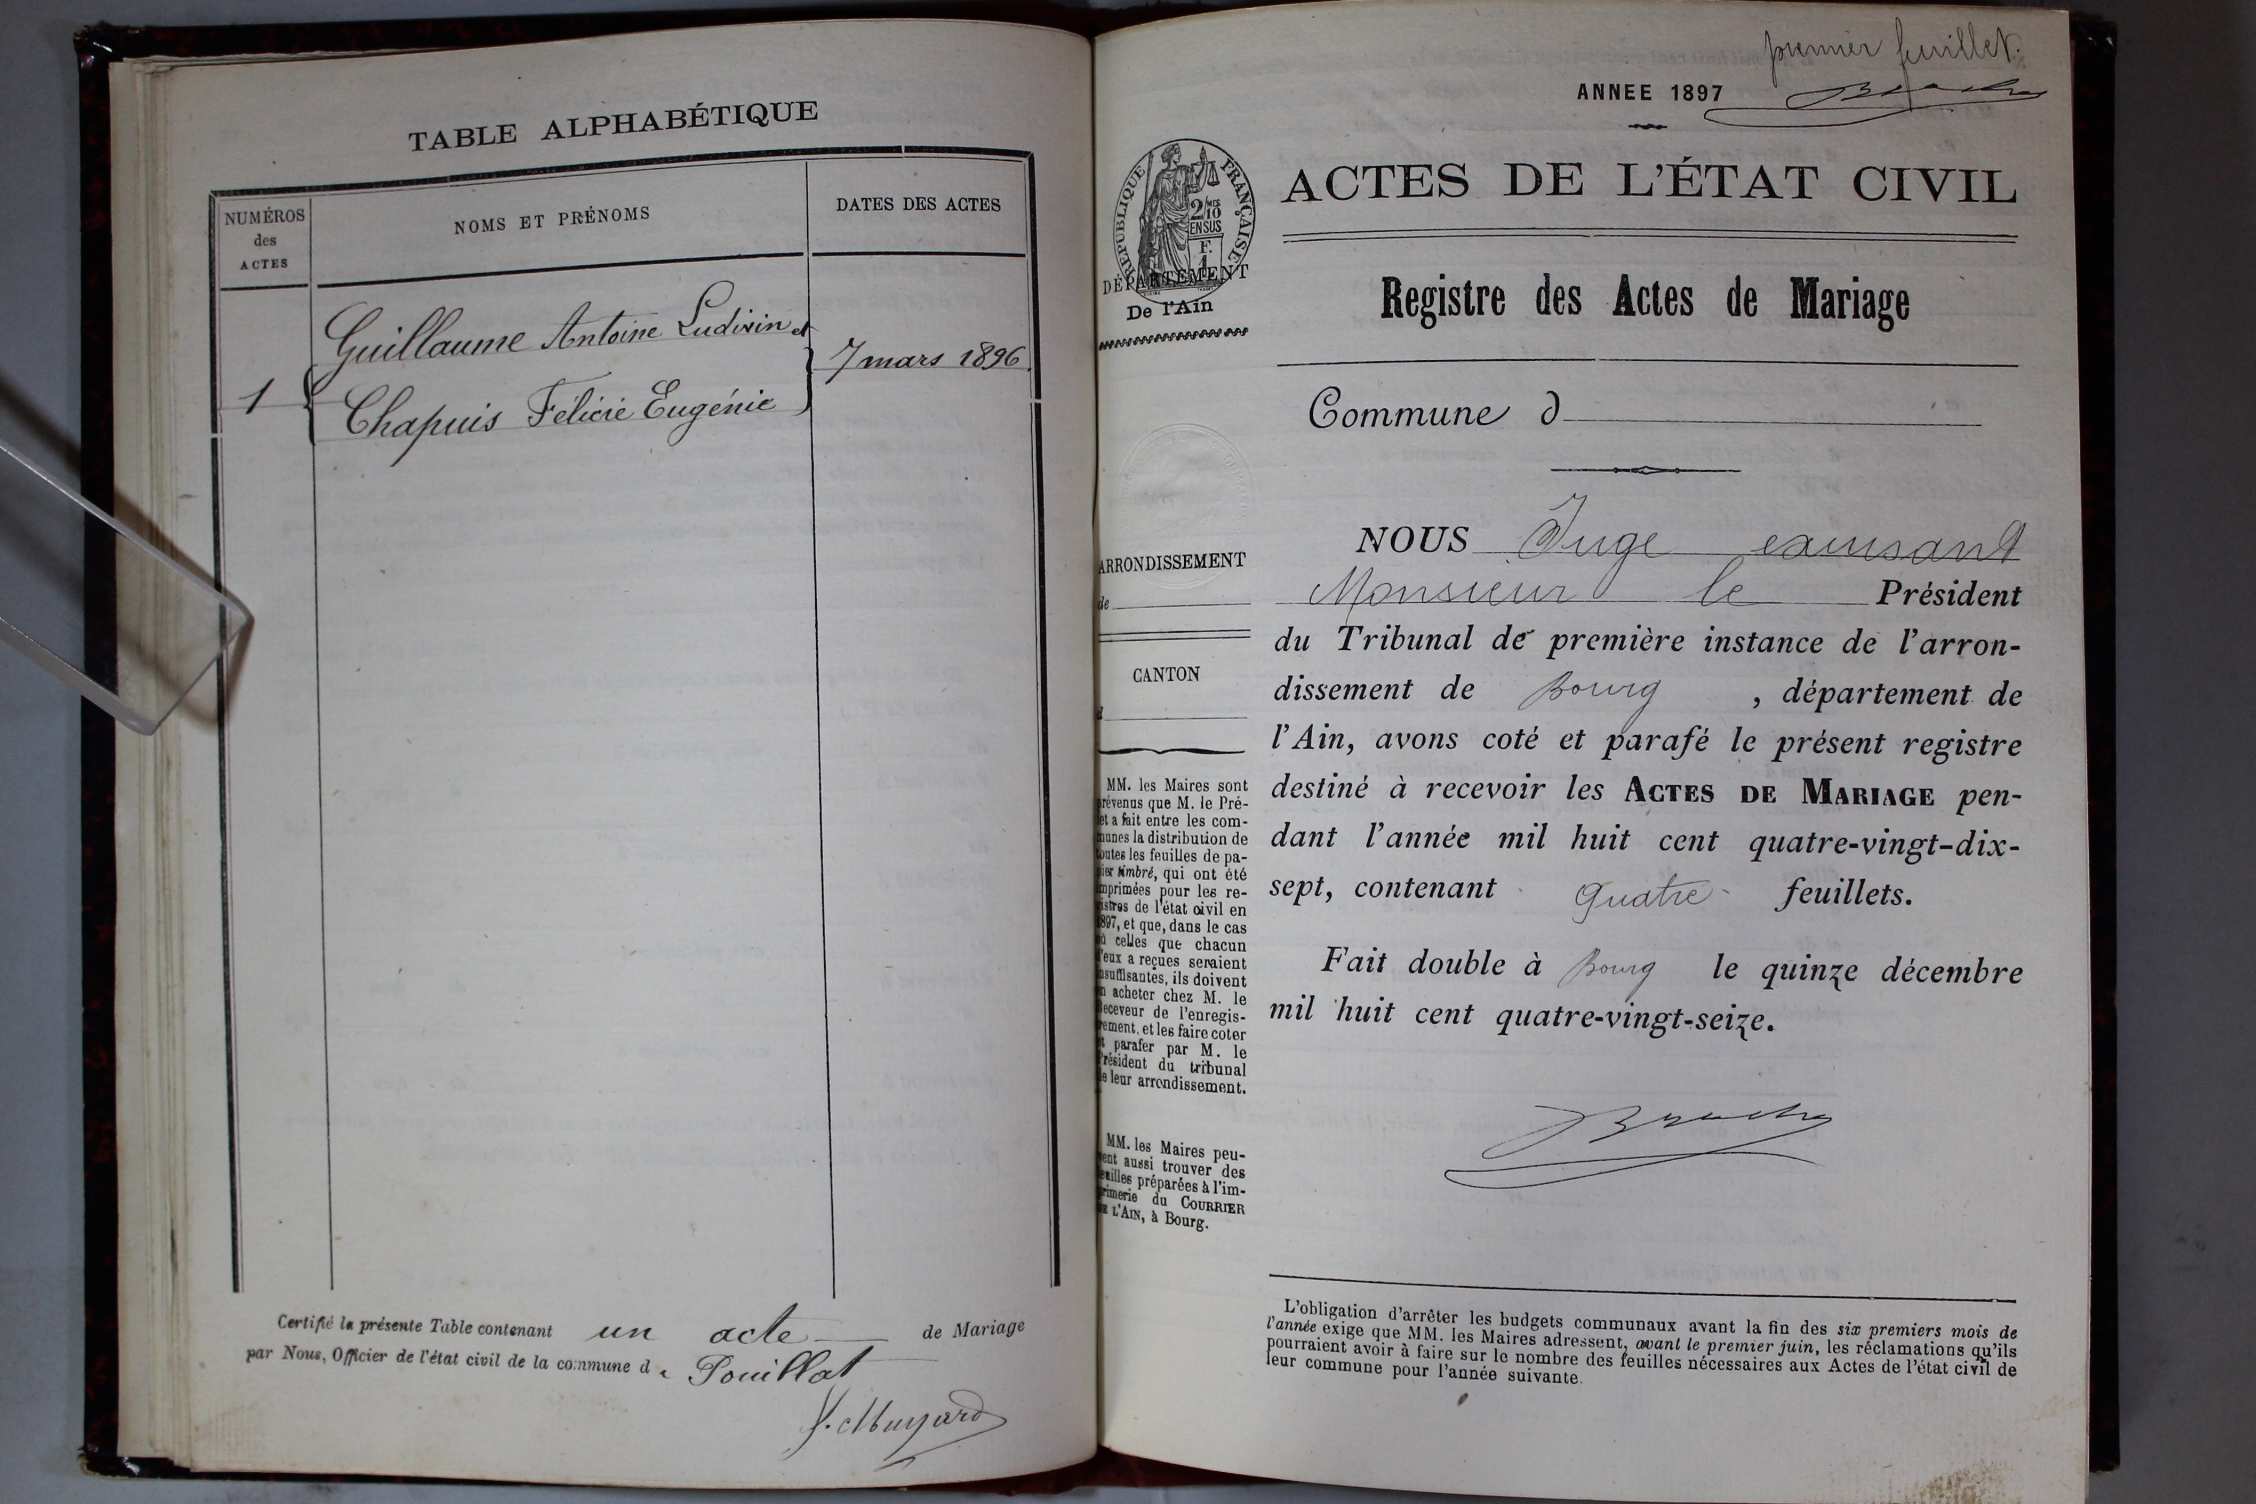 TABLE ALPHABÉTIQUE
NUMÉROS
des
ACTES
NOMS ET PRÉNOMS
DATES DES ACTES
Guillaume Antoine Ludivin et
1
Chapuis Félicie Eugénie
7 mars 1896
Certifié la présente Table contenant un acte de Mariage
par Nous, Officier de l'état civil de la commune de Pouillat
premier feuillet.
ANNEE 1897
RÉPUBLIQUE FRANÇAISE
2/10 MES
EN SUS
F.
1
DÉPARTEMENT
De l'Ain
ARRONDISSEMENT
de
CANTON
d
MM. les Maires sont
prévenus que M. le Pré-
fet a fait entre les com-
munes la distribution de
toutes les feuilles de pa-
pier timbré, qui ont été
imprimées pour les re-
gistres de l'état civil en
1897, et que, dans le cas
où celles que chacun
d'eux a reçues seraient
insuffisantes, ils doivent
en acheter chez M. le
Receveur de l'enregis-
trement, et les faire coter
et parafer par M. le
Président du tribunal
de leur arrondissement.
MM. les Maires peu-
vent aussi trouver des
feuilles préparées à l'im-
primerie du COURRIER
DE L'AIN, à Bourg.
ACTES DE L'ÉTAT CIVIL
Registre des Actes de Mariage
Commune d
NOUS Juge
Monsieur le Président
du Tribunal de première instance de l'arron-
dissement de Bourg , département de
l'Ain, avons coté et parafé le présent registre
destiné à recevoir les ACTES DE MARIAGE pen-
dant l'année mil huit cent quatre-vingt-dix-
sept, contenant quatre feuillets.
Fait double à Bourg le quinze décembre
mil huit cent quatre-vingt-seize.
L'obligation d'arrêter les budgets communaux avant la fin des six premiers mois de
l'année exige que MM. les Maires adressent, avant le premier juin, les réclamations qu'ils
pourraient avoir à faire sur le nombre des feuilles nécessaires aux Actes de l'état civil de
leur commune pour l'année suivante.